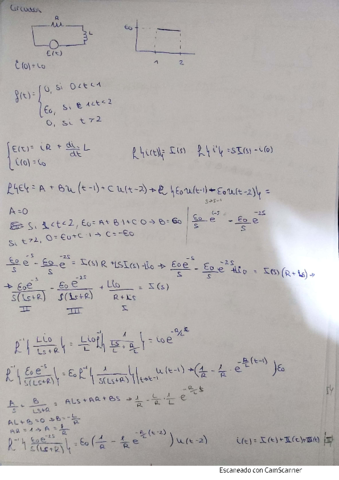 Circuitos
R
L
E(t)
E0
1 2
i(0)=i0
f(t)= { 0, si 0<t<1
E0, si 1<t<2
0, si t>2
{ E(t) = iR + di/dt L
i(0)=i0
L{i(t)}= I(s) L{i'}=sI(s)-i(0)
L{E}= A + B u(t-1) + C u(t-2) → L{E0 u(t-1) - E0 u(t-2)} =
A=0
Si 1<t<2, E0=A+B·1+C·0 → B=E0
E0/s e^-s - E0/s e^-2s
Si t>2, 0=E0+C·1 → C=-E0
E0/s e^-s - E0/s e^-2s = I(s)R + LsI(s) - Li0 → E0/s e^-s - E0/s e^-2s + Li0 = I(s)(R+Ls) →
→ E0 e^-s / s(Ls+R) - E0 e^-2s / s(Ls+R) + Li0 / R+Ls = I(s)
II III I
L^-1{ Li0 / Ls+R } = Li0/L L^-1{ 1 / s+R/L } = i0 e^-R/L t
L^-1{ E0 e^-s / s(Ls+R) } = E0 L^-1{ 1 / s(Ls+R) }|t→t-1 u(t-1) → (1/R - 1/R e^-R/L (t-1)) E0
A/s + B/Ls+R = ALs + AR + Bs
AL+B=0 → B=-L/R
AR=1 → A=1/R
L^-1{ E0 e^-2s / s(Ls+R) } = E0 (1/R - 1/R e^-R/L (t-2)) u(t-2)
Escaneado con CamScanner